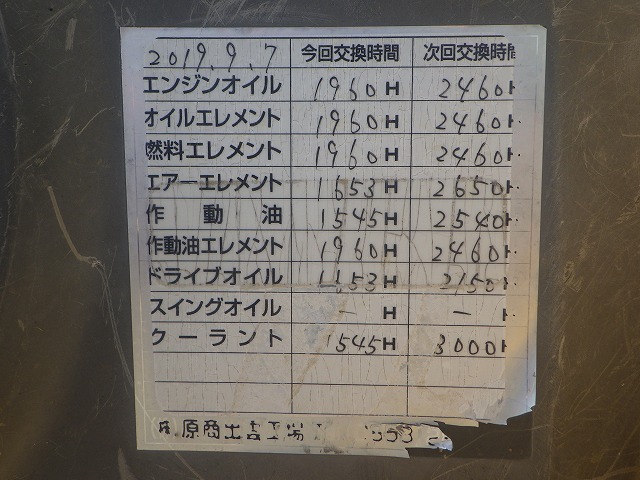 2019.9.7 今回交換時間 次回交換時間
エンジンオイル 1960H 2460H
オイルエレメント 1960H 2460H
燃料エレメント 1960H 2460H
エアーエレメント 1653H 2650H
作動油 1545H 2540H
作動油エレメント 1960H 2460H
ドライブオイル 1153H 2150H
スイングオイル ーH ーH
クーラント 1545H 3000H
原商